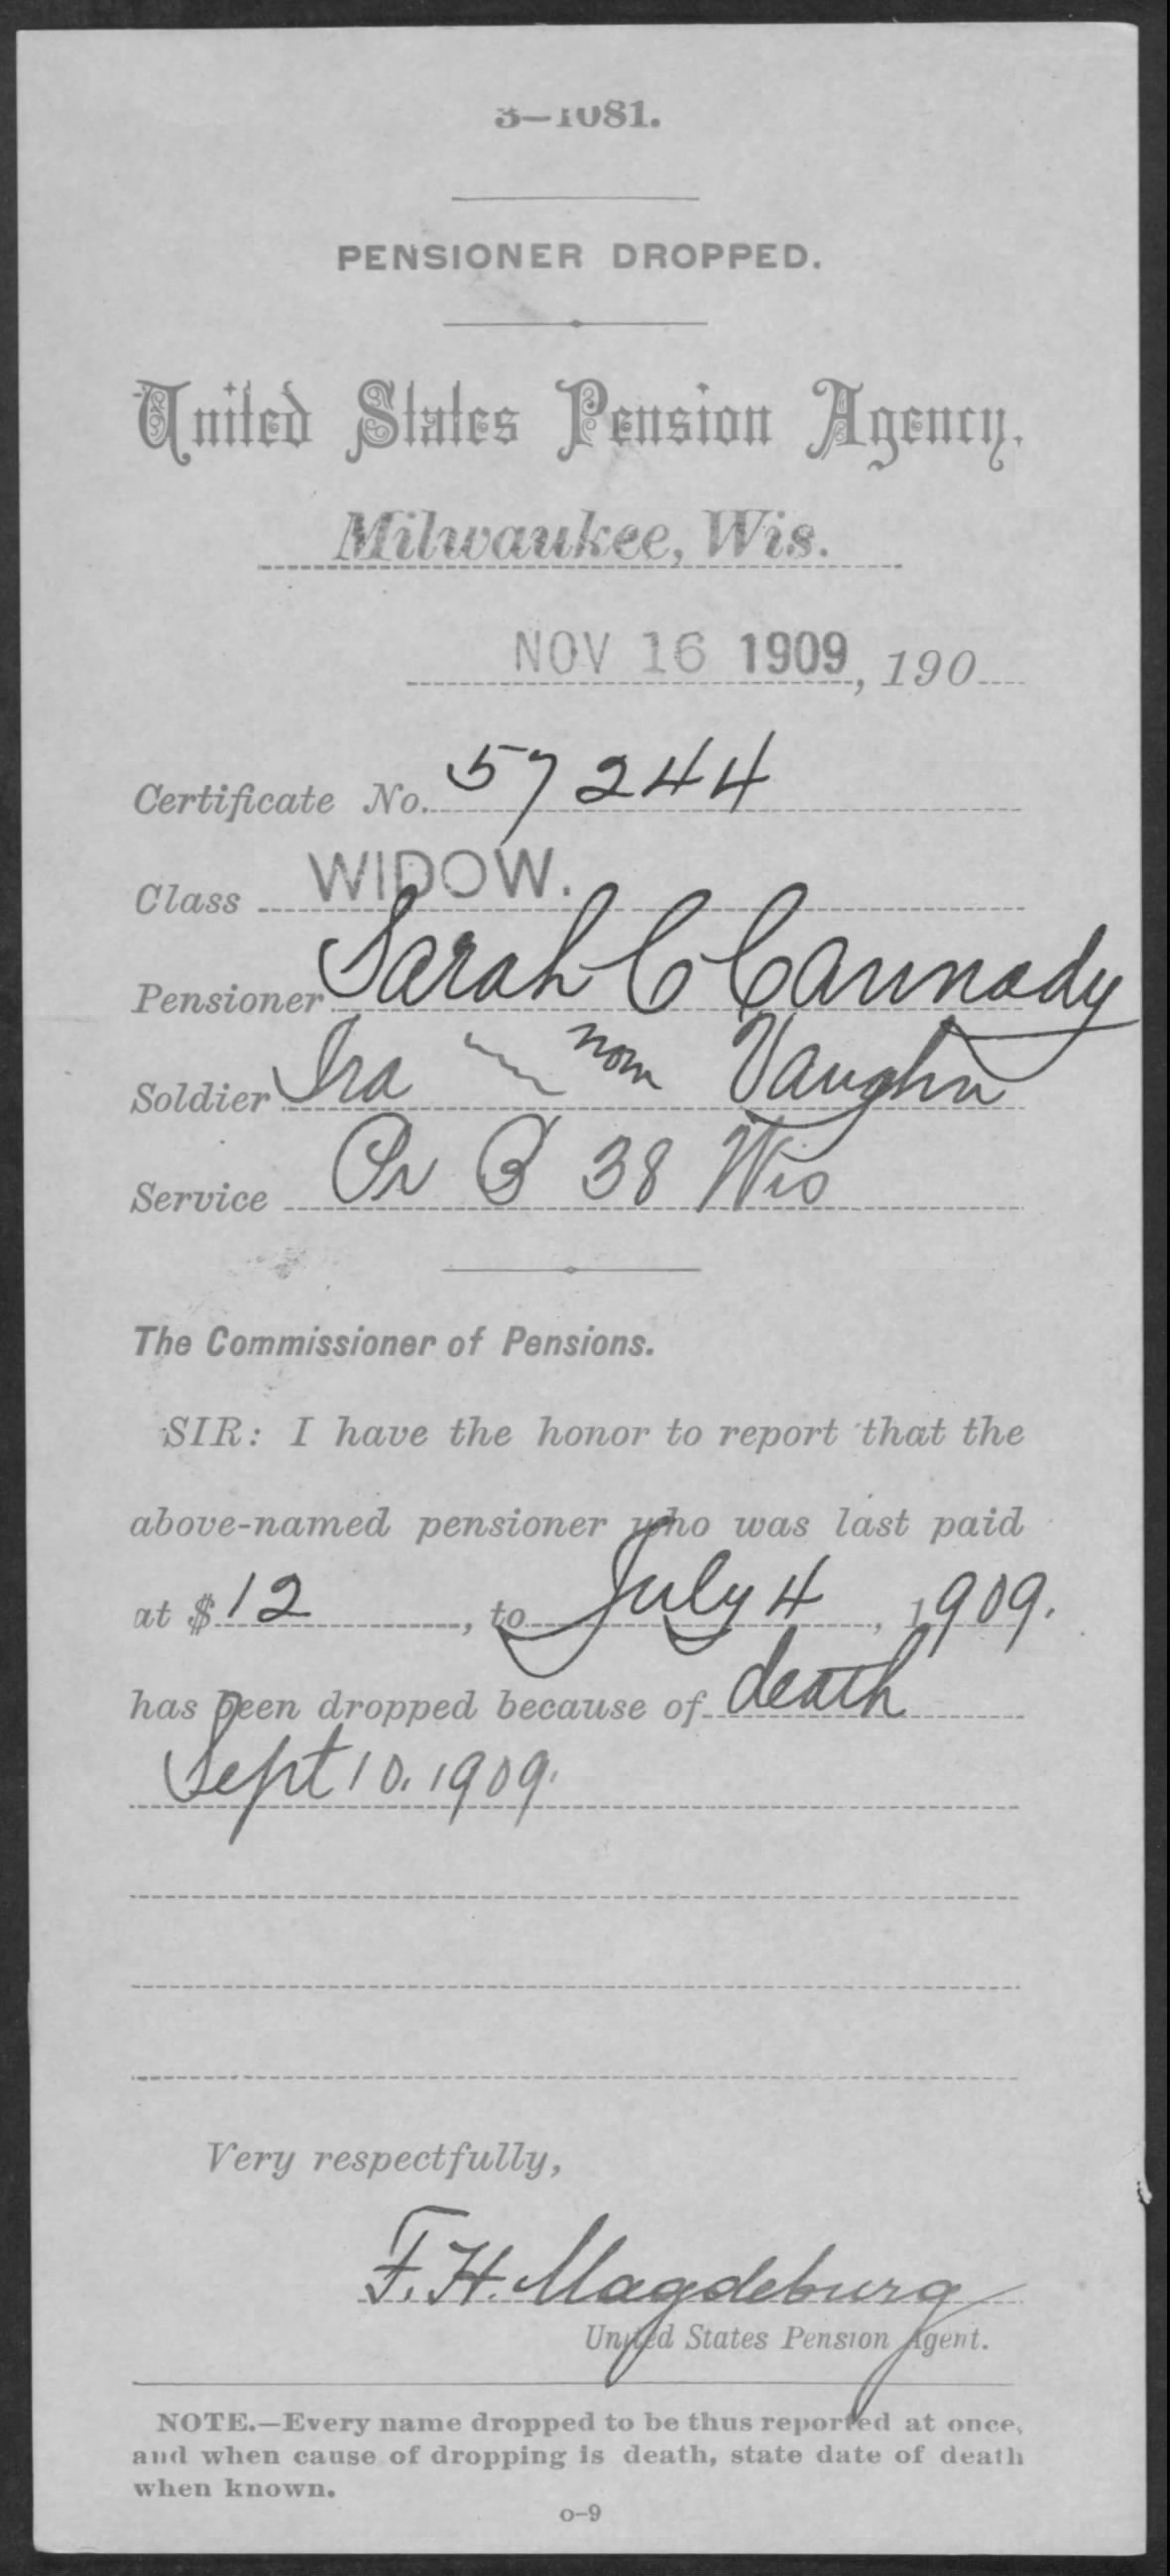 3—1081.
PENSIONER DROPPED.
United States Pension Agency,
Milwaukee, Wis.
NOV 16 1909, 190
Certificate No. 57244
Class WIDOW.
Pensioner Sarah C Cannady
Soldier Ira nom Vaughn
Service Pr B 38 Wis
The Commissioner of Pensions.
SIR: I have the honor to report that the
above-named pensioner who was last paid
at $12, to July 4, 1909.
has been dropped because of death
Sept 10. 1909.
Very respectfully,
F. H. Magdeburg
United States Pension Agent.
NOTE.—Every name dropped to be thus reported at once,
and when cause of dropping is death, state date of death
when known.
o—9